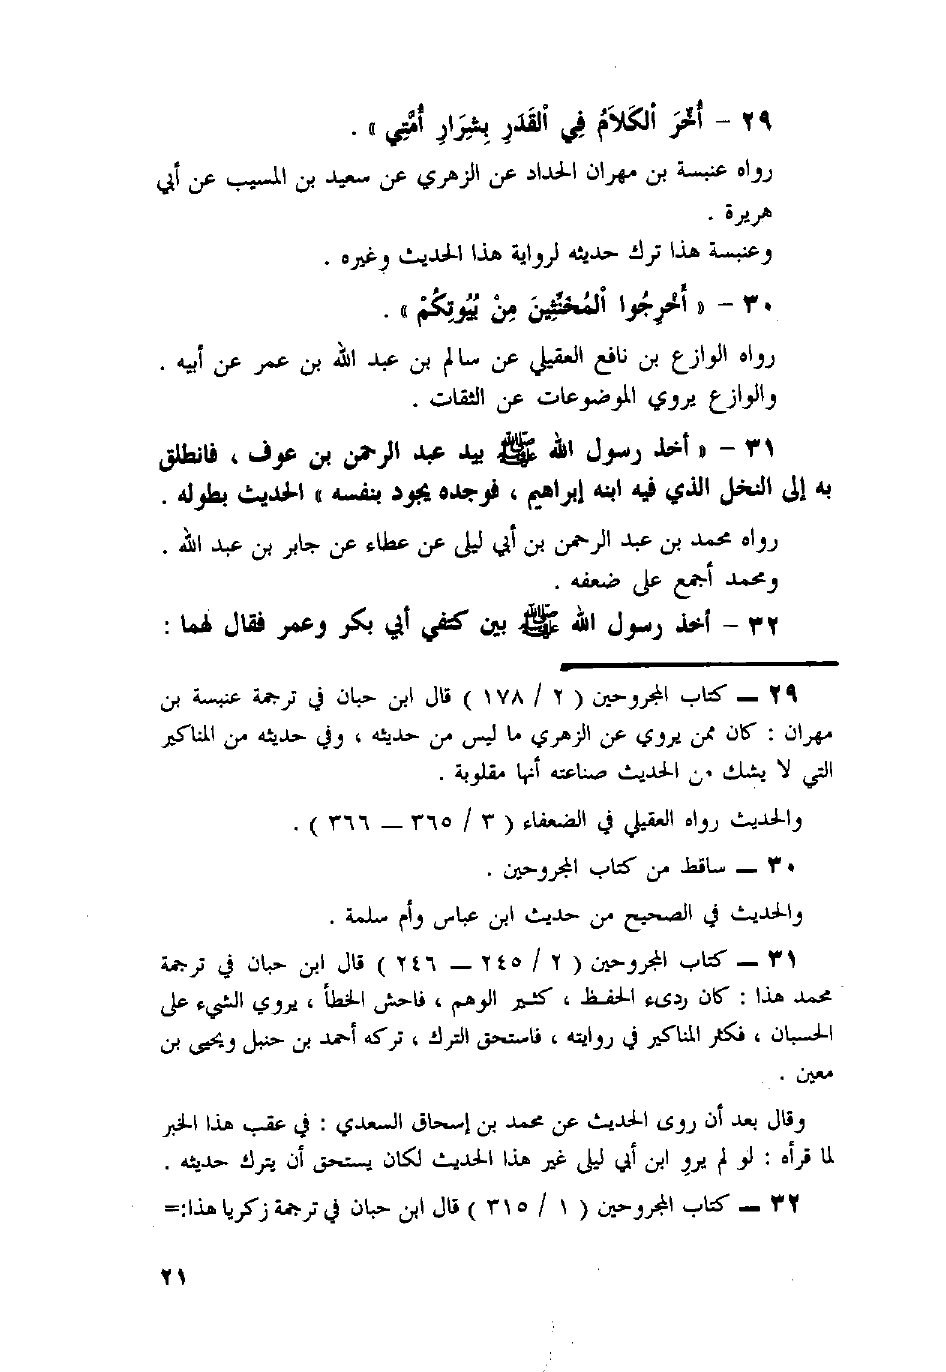 ٢٩ – أُخِّرَ ٱلكَلاَمُ فِي ٱلقَدَرِ بِشِرَارِ أُمَّتِي » .
رواه عنبسة بن مهران الحداد عن الزهري عن سعيد بن المسيب عن أبي
هريرة .
وعنبسة هذا ترك حديثه لرواية هذا الحديث وغيره .
٣٠ – « أَخْرِجُوا ٱلمُخَنَّثِينَ مِنْ بُيُوتِكُمْ » .
رواه الوازع بن نافع العقيلي عن سالم بن عبد الله بن عمر عن أبيه .
والوازع يروي الموضوعات عن الثقات .
٣١ – « أخذ رسول الله ﷺ بيد عبد الرحمن بن عوف ، فانطلق
به إلى النخل الذي فيه ابنه إبراهيم ، فوجده يجود بنفسه » الحديث بطوله .
رواه محمد بن عبد الرحمن بن أبي ليلى عن عطاء عن جابر بن عبد الله .
ومحمد أجمع على ضعفه .
٣٢ – أخذ رسول الله ﷺ بين كتفي أبي بكر وعمر فقال لهما :
٢٩ — كتاب المجروحين ( ٢ / ١٧٨ ) قال ابن حبان في ترجمة عنبسة بن
مهران : كان ممن يروي عن الزهري ما ليس من حديثه ، وفي حديثه من المناكير
التي لا يشك من الحديث صناعته أنها مقلوبة .
والحديث رواه العقيلي في الضعفاء ( ٣ / ٣٦٥ — ٣٦٦ ) .
٣٠ — ساقط من كتاب المجروحين .
والحديث في الصحيح من حديث ابن عباس وأم سلمة .
٣١ — كتاب المجروحين ( ٢ / ٢٤٥ — ٢٤٦ ) قال ابن حبان في ترجمة
محمد هذا : كان رديء الحفظ ، كثير الوهم ، فاحش الخطأ ، يروي الشيء على
الحسبان ، فكثر المناكير في روايته ، فاستحق الترك ، تركه أحمد بن حنبل ويحيى بن
معين .
وقال بعد أن روى الحديث عن محمد بن إسحاق السعدي : في عقب هذا الخبر
لما قرأه : لو لم يرو ابن أبي ليلى غير هذا الحديث لكان يستحق أن يترك حديثه .
٣٢ — كتاب المجروحين ( ١ / ٣١٥ ) قال ابن حبان في ترجمة زكريا هذا:=
٢١